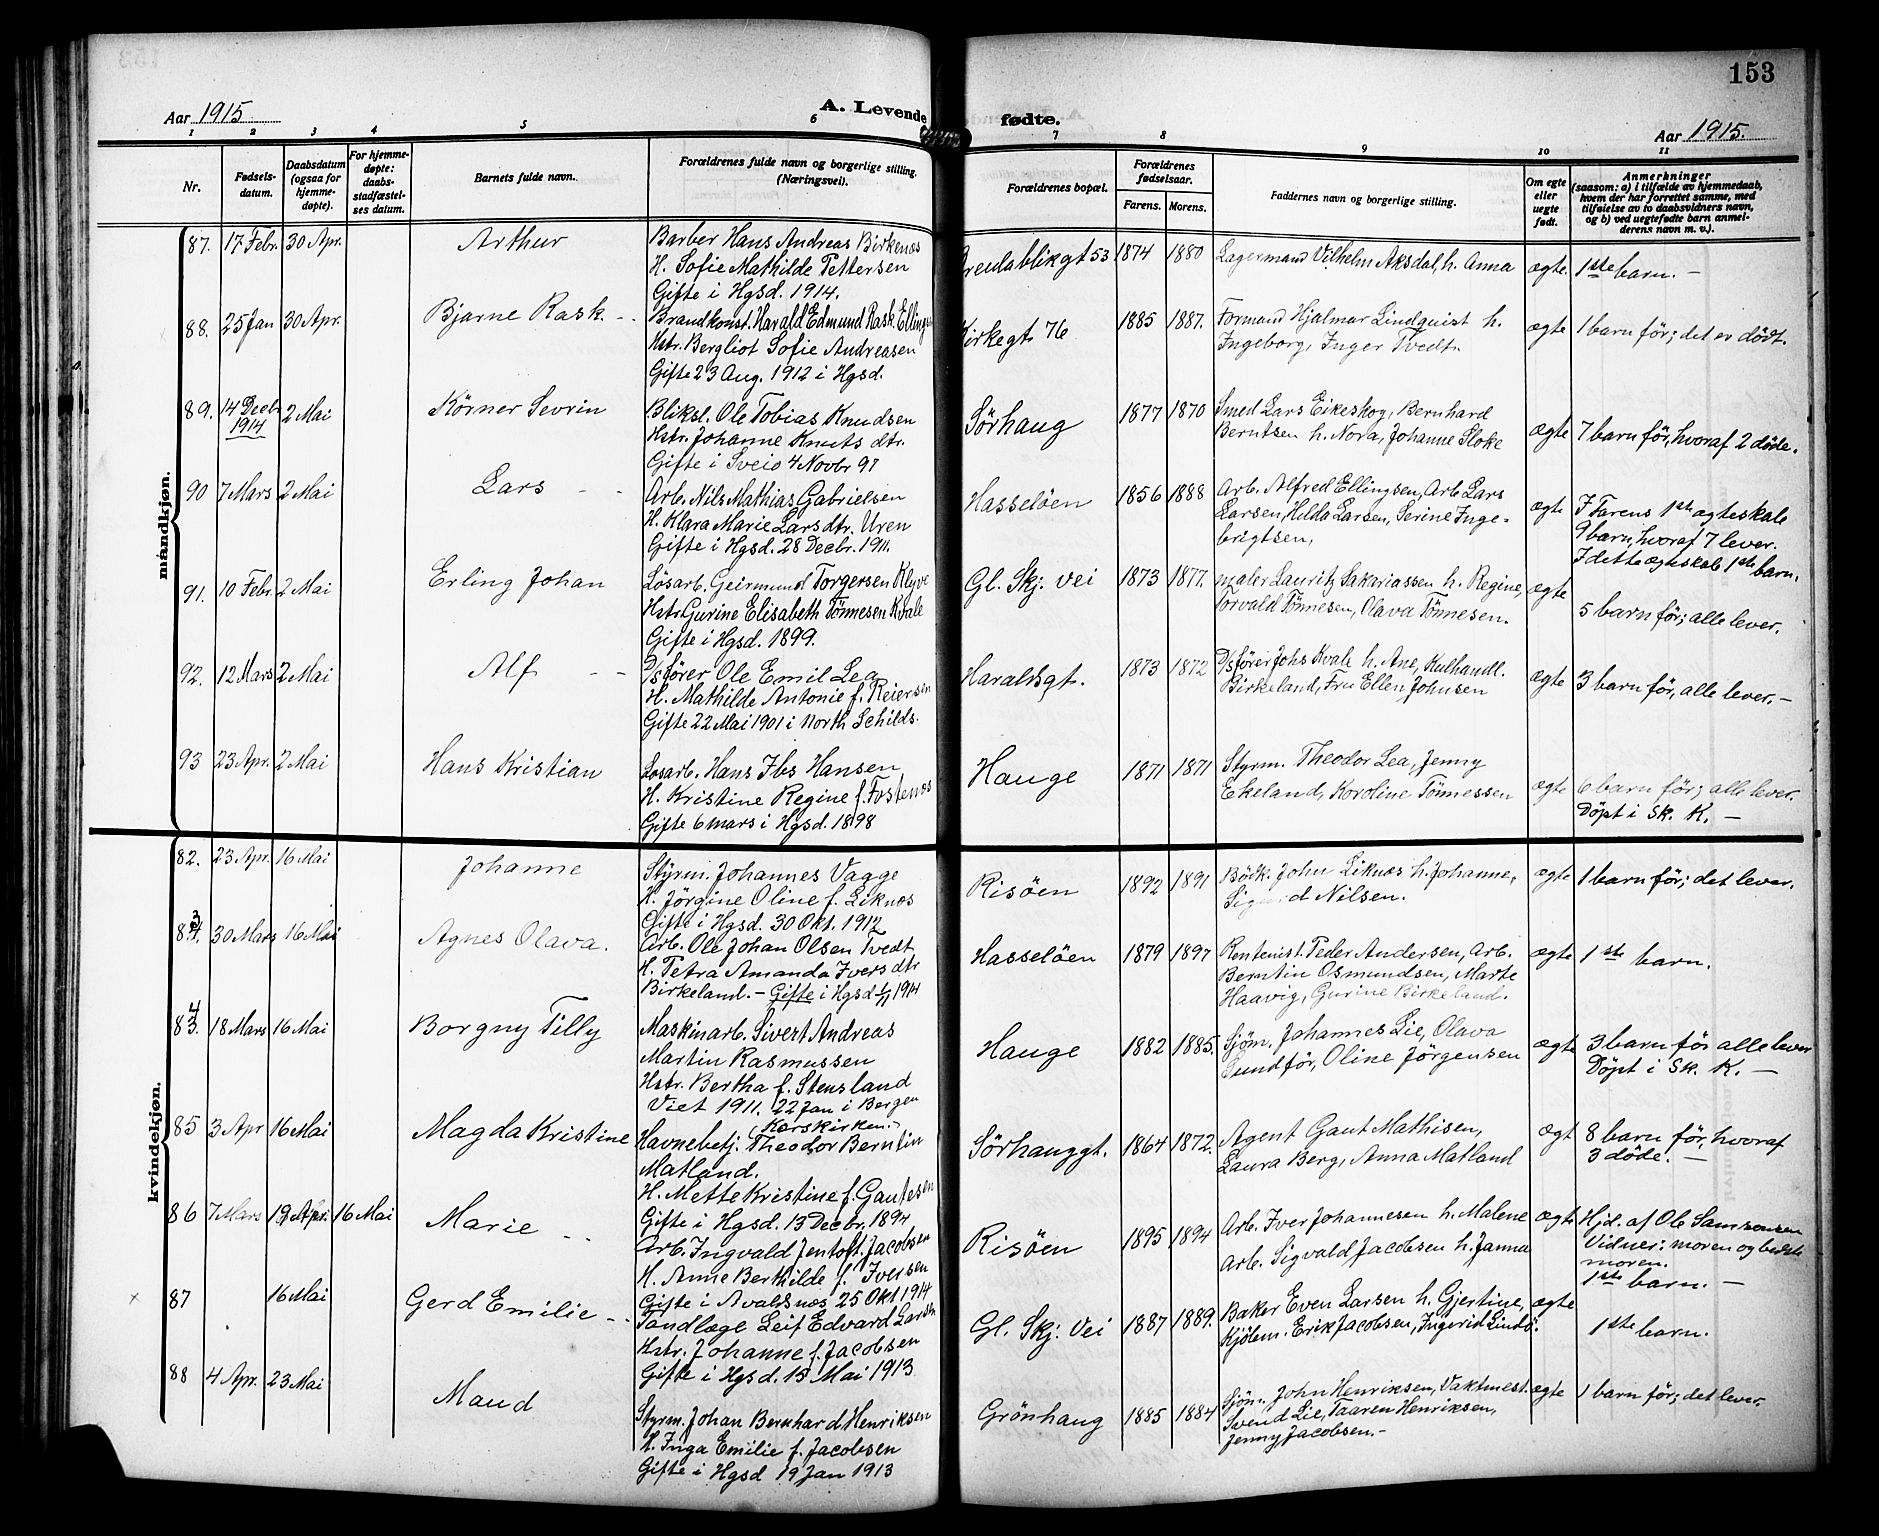 153
Aar 1915.
A. Levende fødte.
Aar 1915.
1 2 3 4 5 6 7 8 9 10 11
Nr.
Fødsels-
datum.
Daabsdatum
(ogsaa for
hjemme-
døpte).
For hjemme-
døpte:
daabs-
stadfæstel-
ses datum.
Barnets fulde navn.
Forældrenes fulde navn og borgerlige stilling.
(Næringsvei).
Forældrenes bopæl.
Forældrenes
fødselsaar.
Farens. Morens.
Faddernes navn og borgerlige stilling.
Om egte
eller
uegte
født.
Anmerkninger
(saasom: a) i tilfælde av hjemmedaab,
hvem der har forrettet samme, med
tilføielse av to daabsvidners navn,
og b) ved uegtefødte barn anmel-
derens navn m. v.).
mandkjøn.
87. 17 Febr. 30 Apr. Arthur
Barber Hans Andreas Birkenæs
H. Sofie Mathilde Pettersen
Gifte i Hgsd. 1914.
53 1874 1880
Lagermand Vilhelm Aksdal, h. Anna
ægte. 1ste barn. -
88. 25 Jan 30 Apr. Bjarne Rask -
Brandkonst. Harald Edmund Rask Ellings
Hstr. Bergliot Sofie Andreasen
Gifte 23 Aug. 1912 i Hgsd.
Kirkegt. 76 1885 1887.
Formand Hjalmar Lindquist h.
Ingeborg, Inger Tvedt.
ægte 1 barn før; det er dödt.
89. 14 Decbr 1914 2 Mai Körner Sevrin
Bliksl. Ole Tobias Knudsen
Hstr. Johanne Knuts dtr.
Gifte i Sveio 4 Novbr 97
Sörhaug 1877 1870
Smed Lars Eikeskog, Bernhard
Berntsen h. Nora, Johanne Sloke
ægte 7 barn för, hvoraf 2 döde.
90 7 Mars 2 Mai Lars - -
Arb. Nils Mathias Gabrielsen
H. Klara Marie Lars dtr. Uren
Gifte i Hgsd. 28 Decbr. 1911.
Hasselöen 1856 1888
Arb. Alfred Ellingsen, Arb Lars
Larsen, Hilda Larsen, Serine Inge-
brigtsen,
ægte I Farens 1ste ægteskab
9 barn, hvoraf 7 lever.
I dette ægteskab 1ste barn.
91. 10 Febr. 2 Mai Erling Johan
Løsarb. Geirmund Torgersen Klyve
Hstr. Gurine Elisabeth Tönnesen Kvale
Gifte i Hgsd. 1899.
Gl. Skj. Vei 1873 1877.
maler Lauritz Sakariassen h. Regine,
Torvald Tönnesen, Olava Tönnesen.
ægte 5 barn för; alle lever.
92. 12 Mars 2 Mai Alf - -
D/s förer Ole Emil Lea
H. Mathilde Antonie f. Reiersen
Gifte 22 Mai 1901 i North Schilds.
Haraldsgt. 1873 1872
D/s förer Johs Kvale h. Ane, Kulhandl.
Birkeland, Fru Ellen Johnsen
ægte 3 barn för, alle lever. -
93 23 Apr. 2 Mai Hans Kristian
Løsarb. Hans Ibs Hansen
H. Kristine Regine f. Fostenæs
Gifte 6 mars i Hgsd. 1898
Hauge 1871 1871
Styrm. Theodor Lea, Jenny
Ekeland, Karoline Tönnessen
ægte 6 barn för; alle lever.
Döpt i Sk. K. -
kvindekjøn.
82. 23 Apr. 16 Mai Johanne
Styrm. Johannes Vagge
H. Jörgine Oline f. Liknæs
Gifte i Hgsd. 30 Okt. 1912
Risöen 1892 1891
Bödk. John Liknæs h. Johanne,
Sigurd Nilsen.
ægte 1 barn för; det lever.
83. 30 Mars 16 Mai Agnes Olava.
Arb. Ole Johan Olsen Tvedt
H. Petra Amanda Ivers dtr
Birkeland. - Gifte i Hgsd 1/11 1914
Hasselöen 1879 1897
Rentenist. Peder Andersen, Arb.
Berntin Osmundsen, Marte
Haavig, Gurine Birkeland.
ægte 1ste barn.
84. 18 Mars 16 Mai Borgny Tilly
Maskinarb. Sivert Andreas
Martin Rasmussen
Hstr. Bertha f. Stensland
Viet 1911. 22 Jan i Bergen
(Korskirken.)
Hauge 1882 1885.
Sjöm. Johannes Lie, Olava
Sundför, Oline Jörgensen
ægte 3 barn för alle lever
Döpt i Sk. K. -
85 3 Apr 16 Mai Magda Kristine
Havnebetj. Theodor Berntin
Matland.
H. Mette Kristine f. Gautesen
Gifte i Hgsd. 13 Decbr. 1894
Sörhauggt. 1864 1872.
Agent Gaut Mathisen,
Laura Berg, Anna Matland
ægt 8 barn för, hvoraf
3 döde. -
86 7 Mars 19 Apr. 16 Mai Marie - -
Arb. Ingvald Jentoft Jacobsen
H. Anne Berthilde f. Iversen
Gifte i Avaldsnæs 25 Okt 1914
Risöen 1895 1894
Arb. Iver Johannesen h. Malene
Arb. Sigvald Jacobsen h. Janna
ægte Hjd. af Ole Samsonsen
Vidner: moren og beste
moren.
1ste barn. -
87 16 Mai Gerd Emilie - -
Tandlæge Leif Edvard Larsen
Hstr. Johanne f. Jacobsen
Gifte i Hgsd. 15 Mai 1913
Gl. Skj. Vei 1887 1889.
Baker Even Larsen h. Gjertine,
Kjölem. Erik Jacobsen, Ingerid Lindö.
ægte 1ste barn.
88 4 Apr. 23 Mai Maud
Styrm. Johan Bernhard Henriksen
H. Inga Emilie f. Jacobsen
Gifte i Hgsd 19 Jan 1913
Grönhaug 1885 1884
Sjöm. John Henriksen, Vaktmest.
Svend Lie, Taaren Henriksen,
Jenny Jacobsen. -
ægte 1 barn för; det lever.